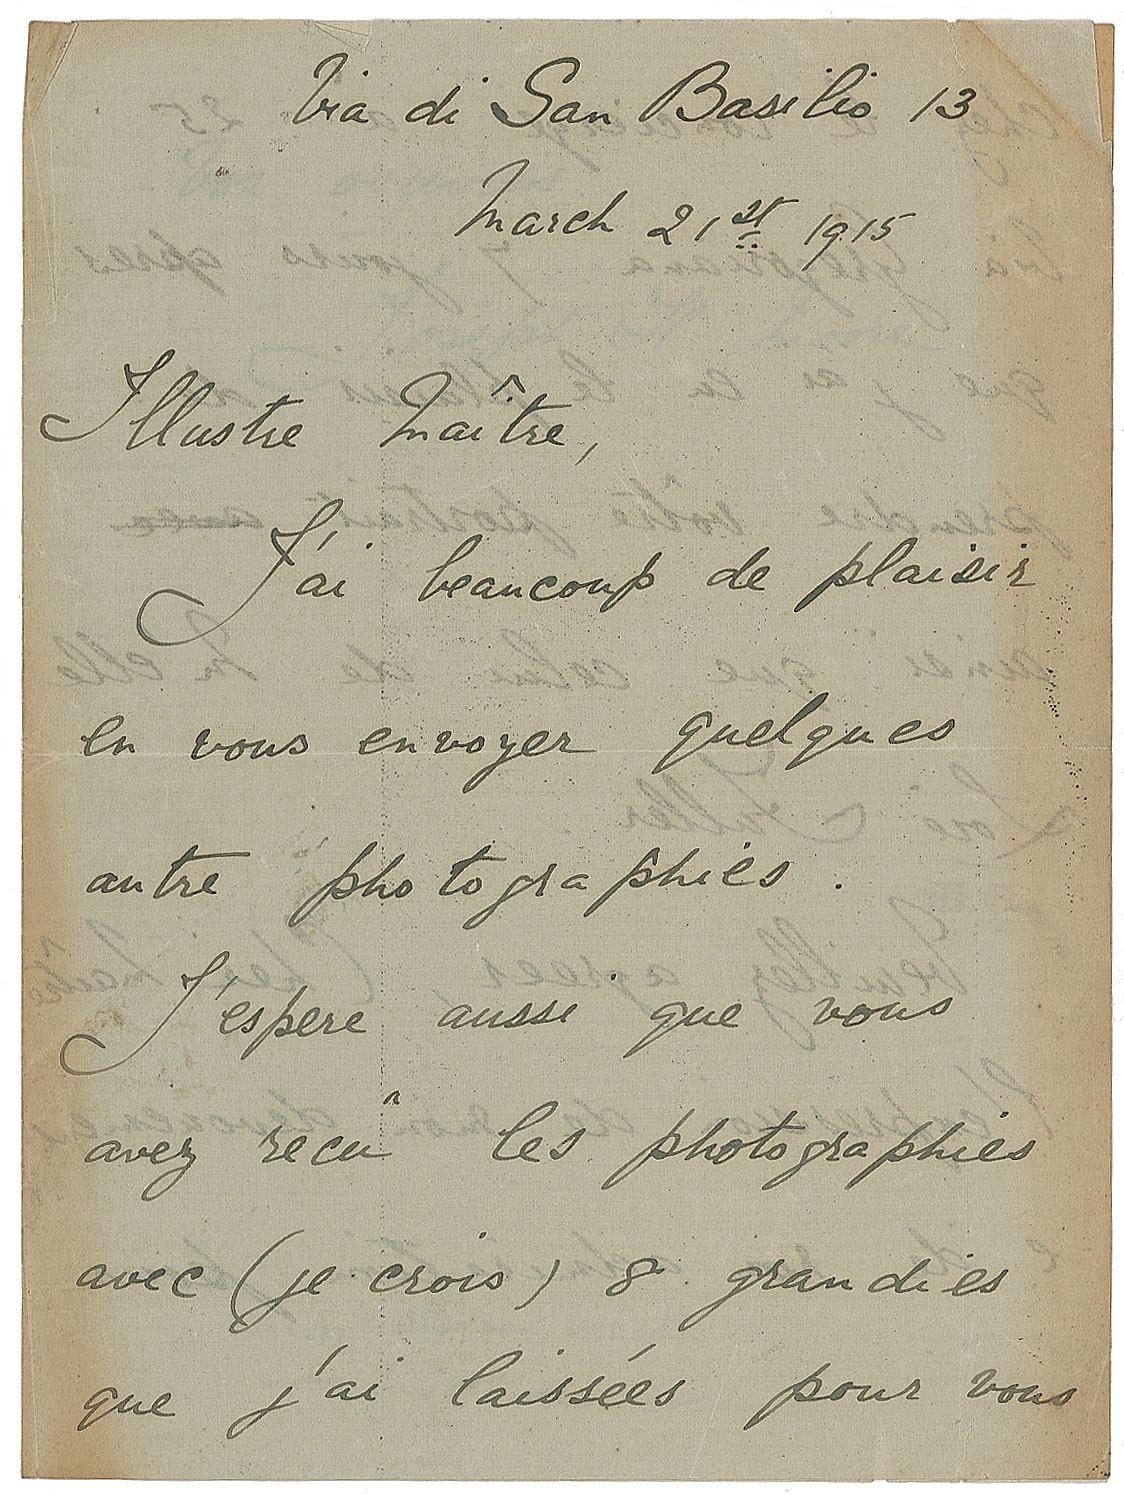 Via di San Basilio 13
March 21st 1915
Illustre Maître,
J'ai beaucoup de plaisir
en vous envoyer quelques
autre photographies.
J'espere aussi que vous
avez recu les photographies
avec (je crois) 8 grandies
que j'ai laissées pour vous